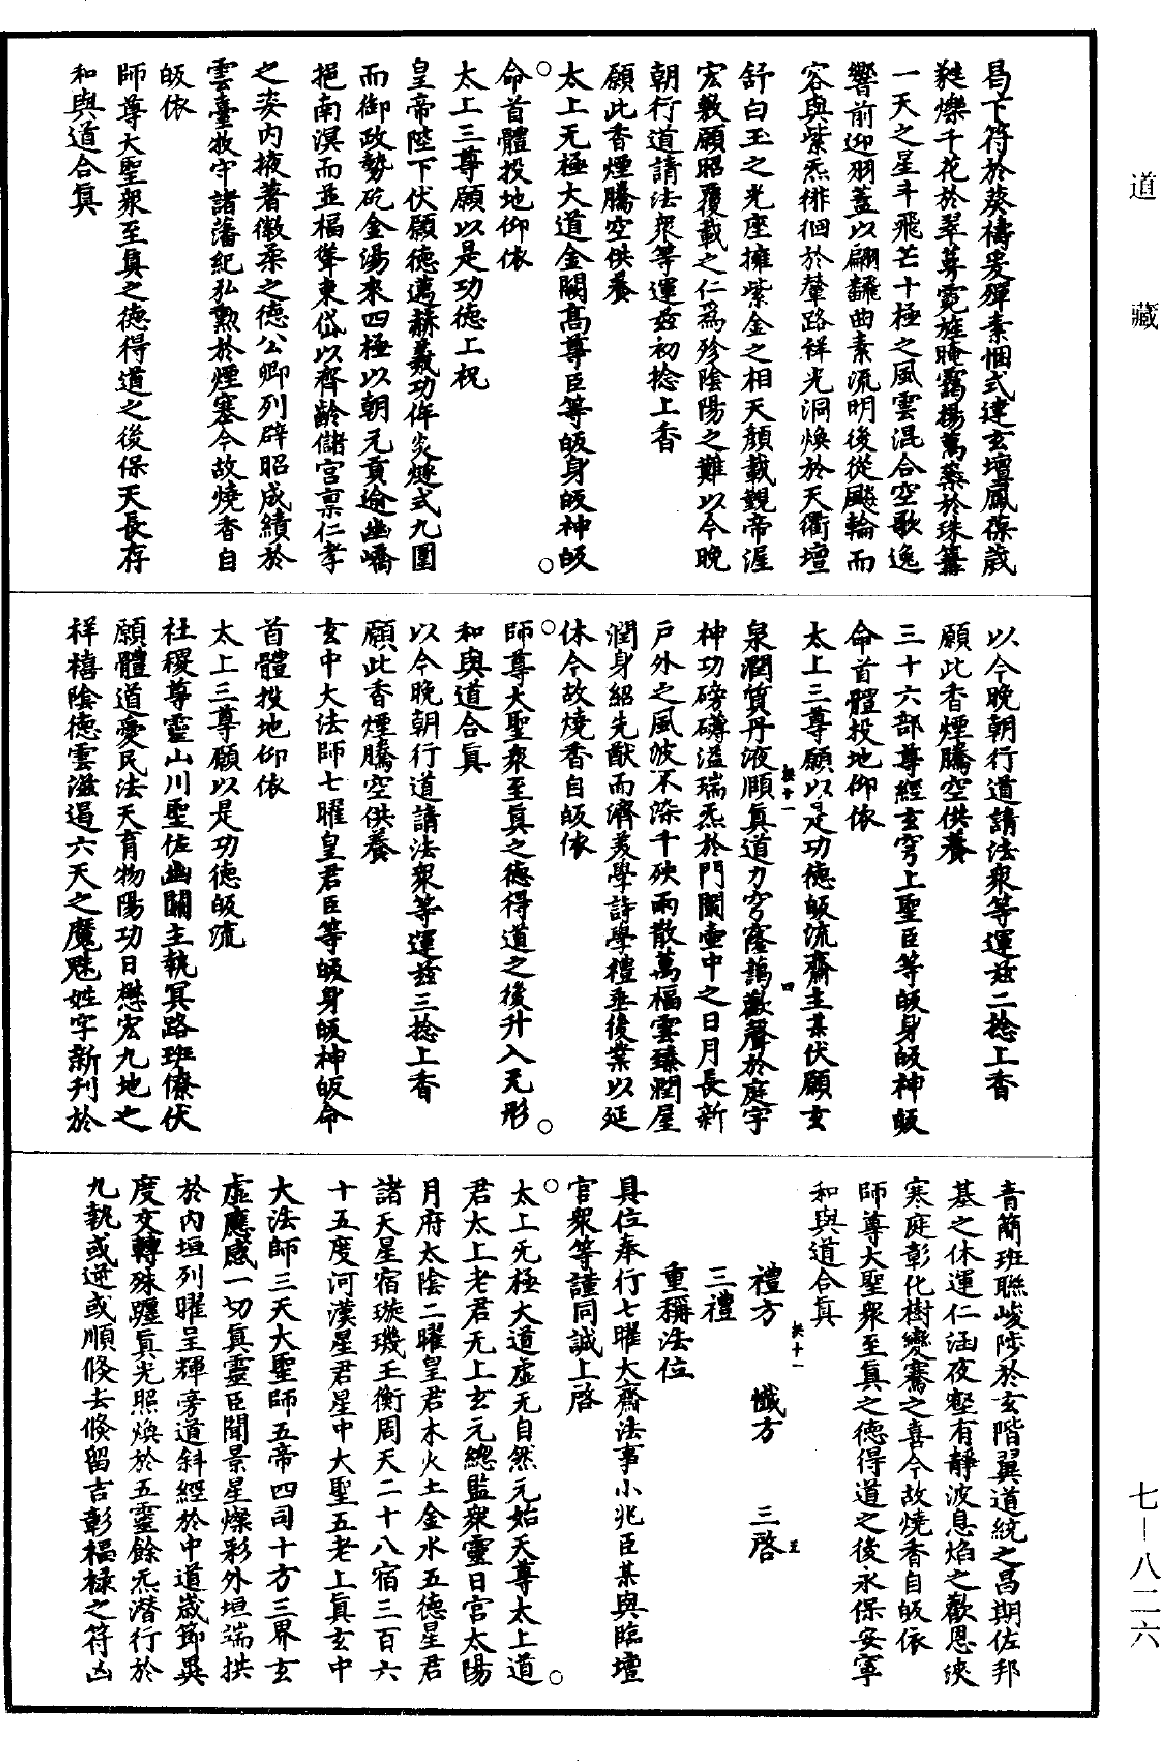 道藏
昌下符於葵禱爰殫素悃式建玄壇鳳葆葳
蕤爍千花於翠葦霓旌晻靄揚萬藥於珠籌
一天之星斗飛芒十極之風雲混合空歌逸
響前迎羽蓋以翩飜曲素流明後從飈輪而
容與紫炁徘徊於輦路祥光洞煥於天衢壇
舒白玉之光座擁紫金之相天顏載覲帝渥
宏敷願昭覆載之仁為殄陰陽之難以今晚
朝行道請法衆等運兹初捻上香
願此香煙騰空供養
太上无極大道金闕高尊臣等皈身皈神皈
命首體投地仰依
太上三尊願以是功德上祝
皇帝陛下伏願德邁赫羲功侔炎燧式九圍
而御政勢矹金湯來四極以朝元貢逾幽嶠
挹南溟而並福聳東岱以齊齡儲宮稟仁孝
之姿内掖著徽柔之德公卿列辟昭成績於
雲臺牧守諸藩紀弘勲於煙塞今故燒香自
皈依
師尊大聖衆至真之德得道之後保天長存
和與道合真
以今晚朝行道請法衆等運兹二捻上香
願此香煙騰空供養
三十六部尊經玄穹上聖臣等皈身皈神皈
命首體投地仰依
太上三尊願以是功德皈流齋主某伏願玄
泉潤質丹液頤真道力穹窿藹歡聲於庭宇
神功磅礴溢瑞炁於門闌壷中之日月長新
戶外之風波不染千殃雨散萬福雲臻潤屋
潤身紹先猷而濟美學詩學禮垂後業以延
休今故燒香自皈依
師尊大聖衆至真之德得道之後升入无形
和與道合真
以今晚朝行道請法衆等運兹三捻上香
願此香煙騰空供養
玄中大法師七曜皇君臣等皈身皈神皈命
首體投地仰依
太上三尊願以是功德皈流
社稷尊靈山川聖佐幽關主執冥路班僚伏
願體道憂民法天育物陽功日懋宏九地之
祥禧陰德雲滋遏六天之魔魅姓字新刊於
青簡班聯峻陟於玄階翼道統之昌期佐邦
基之休運仁涵夜壑有靜波息焰之歡恩浹
寒庭彰化樹變騫之喜今故燒香自皈依
師尊大聖衆至真之德得道之後永保安寧
和與道合真
禮方 懺方 三啓
三禮
重稱法位
具位奉行七曜大齋法事小兆臣某與臨壇
官衆等謹同誠上啓
太上无極大道虛无自然元始天尊太上道
君太上老君无上玄元總監衆靈日宮太陽
月府太陰二曜皇君木火土金水五德星君
諸天星宿璇璣玉衡周天二十八宿三百六
十五度河漢星君星中大聖五老上真玄中
大法師三天大聖師五帝四司十方三界玄
虛應感一切真靈臣聞景星燦彩外垣端拱
於内垣列曜呈輝旁道斜經於中道歲節異
度交轉殊躔真光照煥於五靈餘炁潛行於
九執或逆或順倏去倏留吉彰福禄之符凶
七—八二六